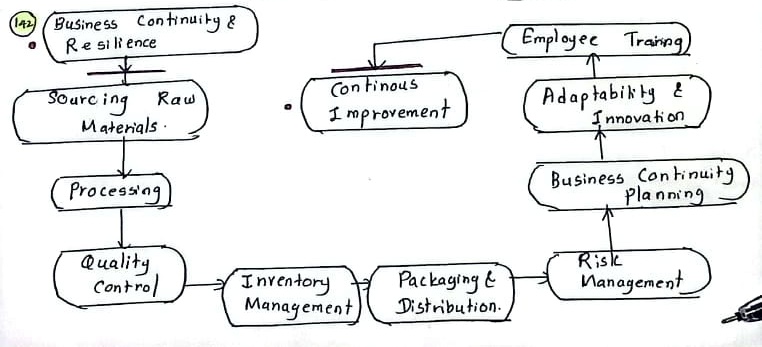 142
Business Continuity &
Resilience
Sourcing Raw
Materials.
Processing
Quality
Control
Inventory
Management
Packaging &
Distribution.
Risk
Management
Business Continuity
Planning
Adaptability &
Innovation
Employee Traning
Continous
Improvement